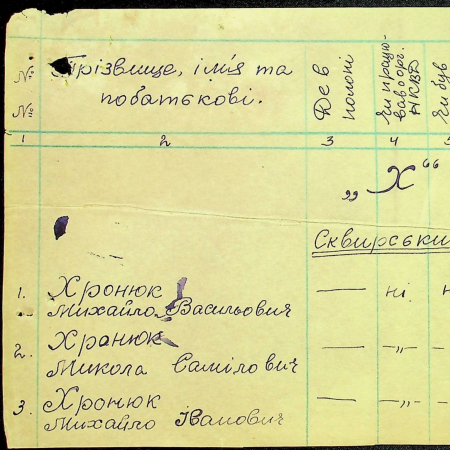 № Прізвище, ім'я та
№ по батькові.
Де в
полоні
Чи працю-
вав в орг.
НКВД
Чи був
1 2 3 4
„Х“
Сквирський
1. Хронюк — ні
Михайло Васильович
2. Хранюк — -„- —
Микола Самілович
3. Хронюк — -„-
Михайло Іванович